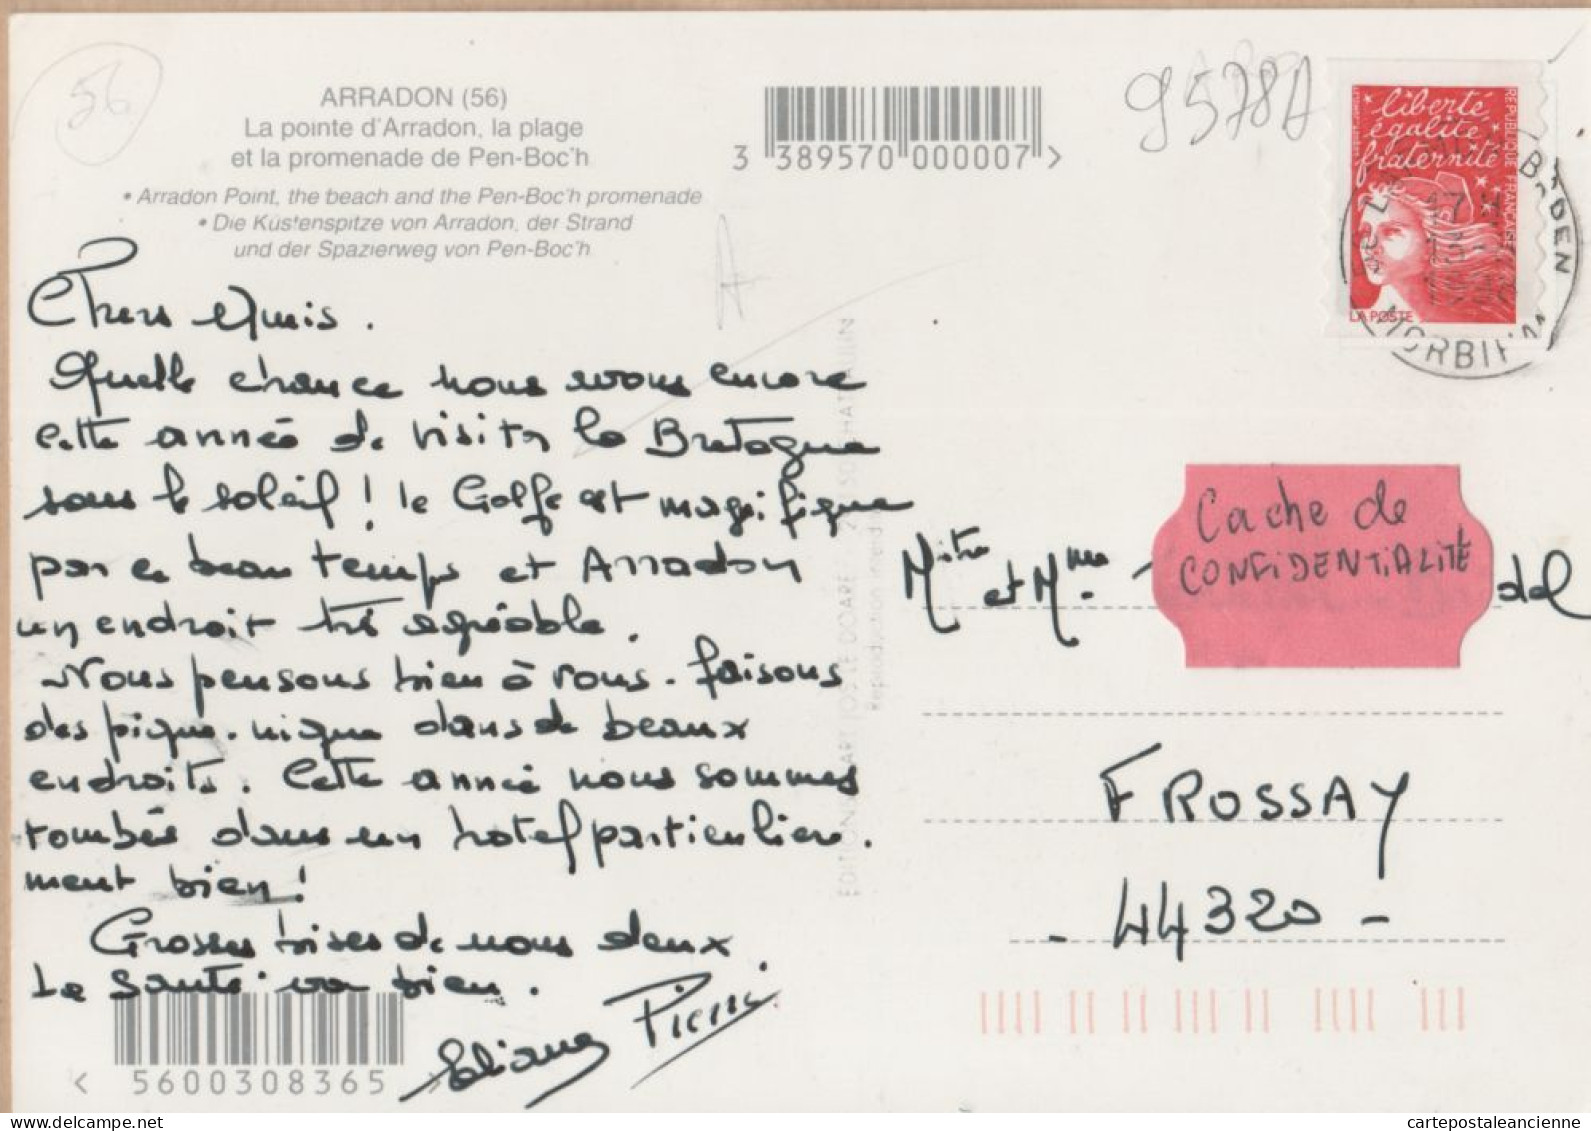 56
ARRADON (56)
La pointe d'Arradon, la plage
et la promenade de Pen-Boc'h
• Arradon Point, the beach and the Pen-Boc'h promenade
• Die Küstenspitze von Arradon, der Strand
und der Spazierweg von Pen-Boc'h
3 389570 000007 >
9578A
liberté
égalité
fraternité
REPUBLIQUE FRANÇAISE
LA POSTE
MORBIHAN
A
Chers Amis.
Quelle chance nous avons encore
cette année de visiter la Bretagne
sous le soleil ! le Golfe est magnifique
par ce beau temps et Arradon
un endroit très agréable.
Nous pensons bien à vous. faisons
des pique-nique dans de beaux
endroits. Cette année nous sommes
tombés dans un hotel particulière.
ment bien !
Grosses bises de nous deux.
La santé va bien.
Eliane Pierre
EDITIONS D'ART JOS LE DOARE
Reproduction interdite
Mitre et Mme
Cache de
CONFIDENTIALITÉ
del
FROSSAY
- 44320 -
< 5600308365 >
www.delcampe.net
cartepostaleancienne